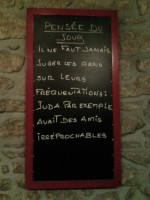 PENSÉE DU
JOUR
IL NE FAUT JAMAIS
JUGER LES GENS
SUR LEURS
FRÉQUENTATIONS :
JUDA PAR EXEMPLE
AVAIT DES AMIS
IRRÉPROCHABLES